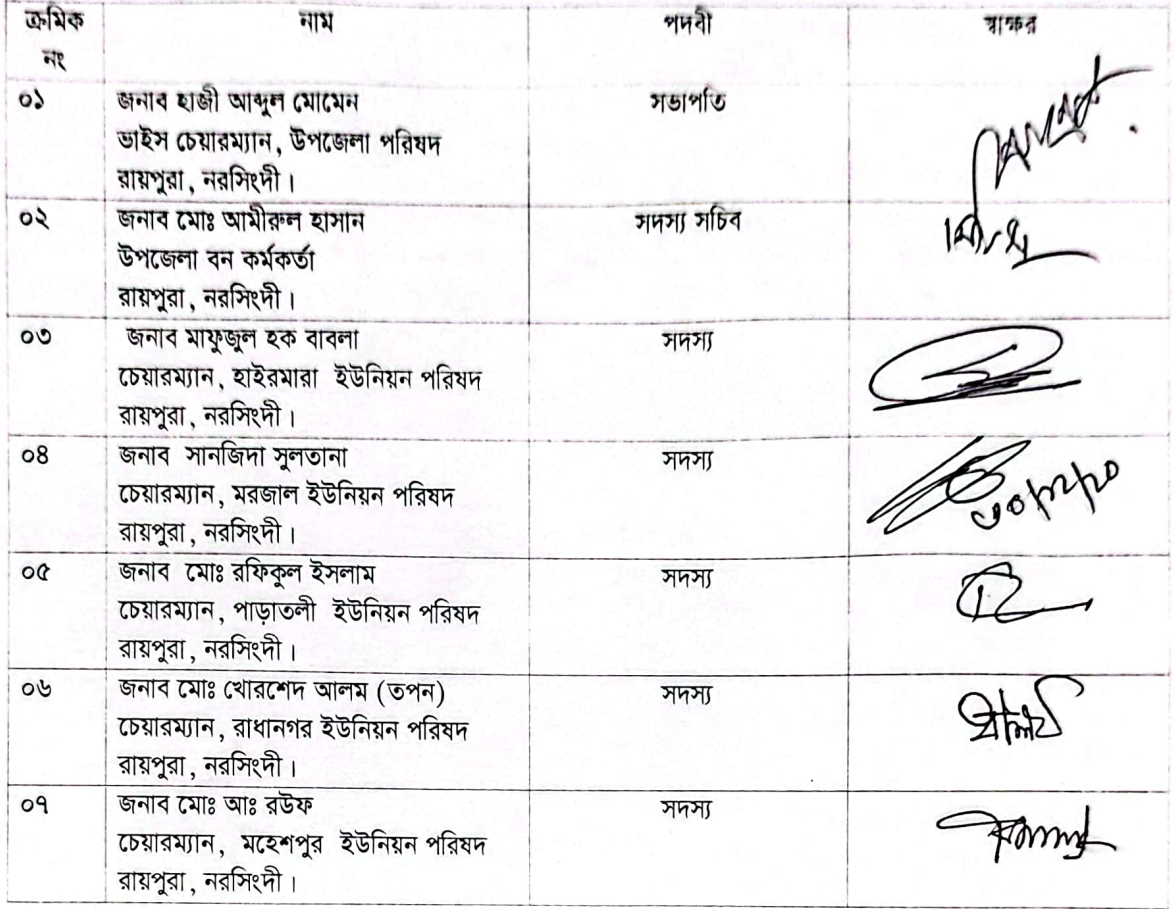 ক্রমিক নং নাম পদবী স্বাক্ষর
০১ জনাব হাজী আব্দুল মোমেন সভাপতি
ভাইস চেয়ারম্যান, উপজেলা পরিষদ
রায়পুরা, নরসিংদী।
০২ জনাব মোঃ আমীরুল হাসান সদস্য সচিব
উপজেলা বন কর্মকর্তা
রায়পুরা, নরসিংদী।
০৩ জনাব মাফুজুল হক বাবলা সদস্য
চেয়ারম্যান, হাইরমারা ইউনিয়ন পরিষদ
রায়পুরা, নরসিংদী।
০৪ জনাব সানজিদা সুলতানা সদস্য
চেয়ারম্যান, মরজাল ইউনিয়ন পরিষদ
রায়পুরা, নরসিংদী।
০৫ জনাব মোঃ রফিকুল ইসলাম সদস্য
চেয়ারম্যান, পাড়াতলী ইউনিয়ন পরিষদ
রায়পুরা, নরসিংদী।
০৬ জনাব মোঃ খোরশেদ আলম (তপন) সদস্য
চেয়ারম্যান, রাধানগর ইউনিয়ন পরিষদ
রায়পুরা, নরসিংদী।
০৭ জনাব মোঃ আঃ রউফ সদস্য
চেয়ারম্যান, মহেশপুর ইউনিয়ন পরিষদ
রায়পুরা, নরসিংদী।